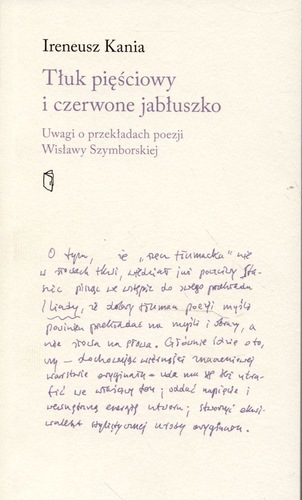 Ireneusz Kania
Tłuk pięściowy
i czerwone jabłuszko
Uwagi o przekładach poezji
Wisławy Szymborskiej
O tym, że „rzecz tłumacka” nie
w słowach tkwi, wiedział już poczciwy
pisząc we wstępie do swego przekładu
Iliady, iż dobry tłumacz poezji myśli
powinien przekładać na myśli i słowy, a
nie słowa na słowa. Głównie idzie o to,
by – dochowując wierności znaczeniowej
warstwie oryginału – uda mu się też utra-
fić we właściwy ton; oddać napięcie i
wewnętrzną energię utworu; stworzyć ekwi-
walent stylistycznej wersji oryginału.